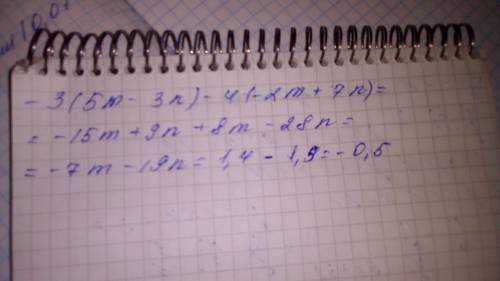 - 3(5m - 3n) - 4(-2m + 7n) =
= -15m + 9n + 8m - 28n =
= -7m - 19n = 1,4 - 1,9 = -0,5